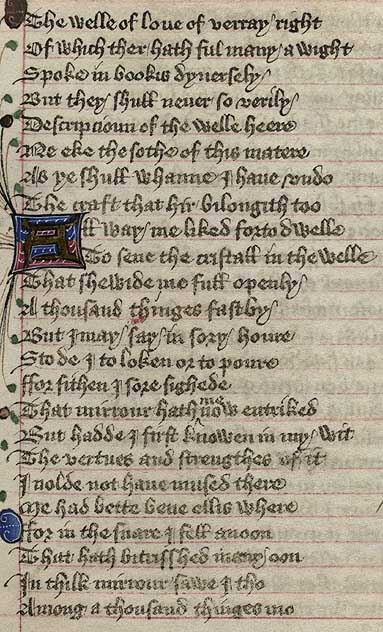 The welle of loue of verray right
Of which ther hath ful many a wight
Spoke in bookis dyuersely
But they shull neuer so verily
Descripcioun of the welle heere
Ne eke the sothe of this matere
As ye shull whanne I haue vndo
The craft that hir bilongith too
All way me liked forto dwelle
To sene the cristall in the welle
That shewide me full openly
A thousand thinges fastby
But I may say in sory houre
Stode I to loken or to poure
ffor sithen I sore sighede
That mirrour hath me now entriked
But hadde I first knowen in my wit
The vertues and strengthes of it
I nolde not haue mused there
Me had bette bene ellis where
ffor in the snare I fell anoon
That hath bitrisshed many oon
In thilk mirrour sawe I tho
Among a thousand thinges mo